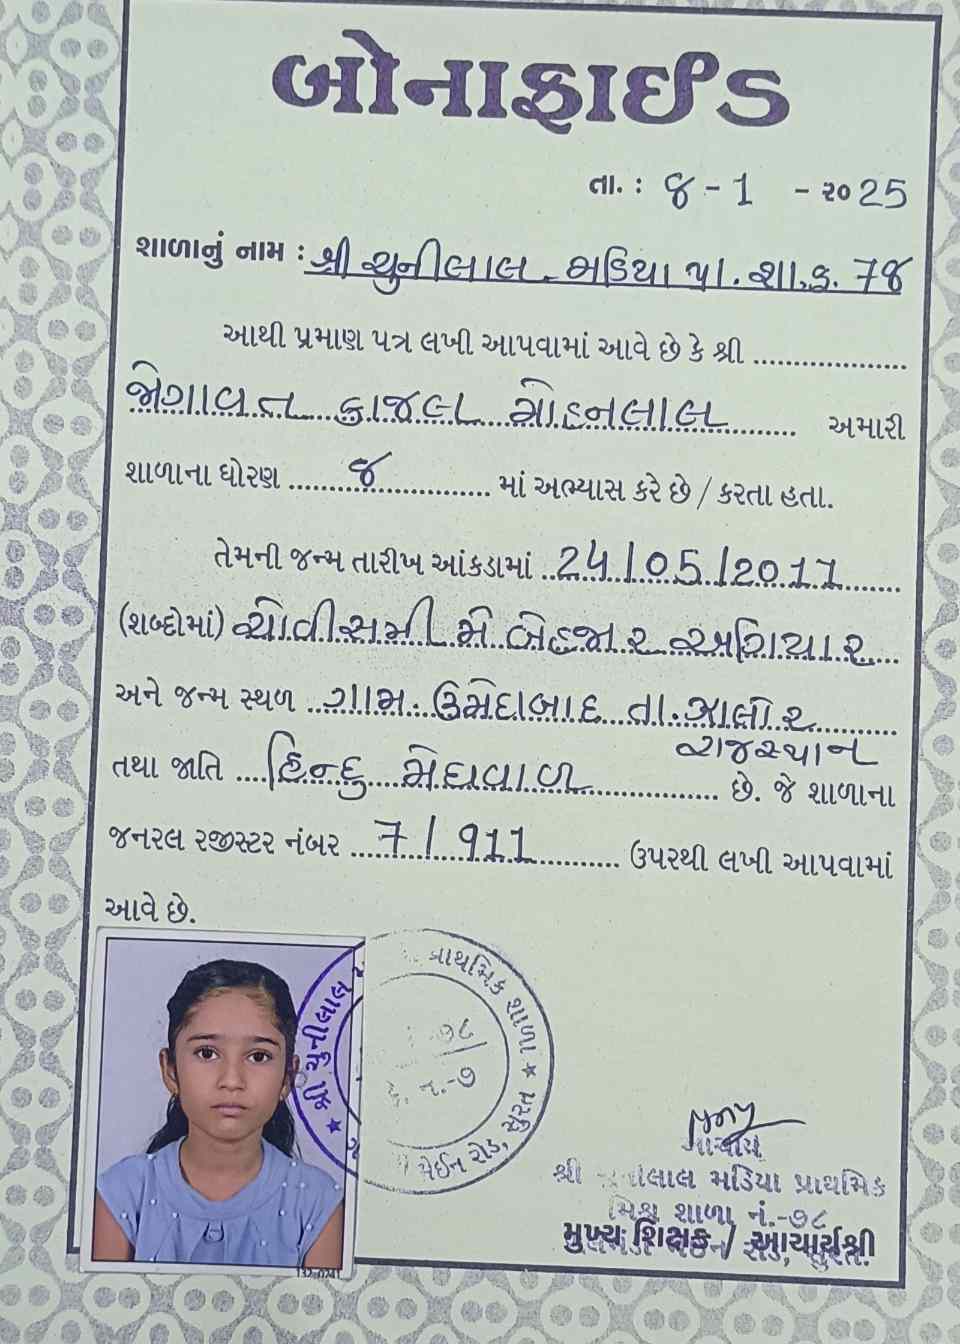 બોનાફાઈડ
તા. : ૪ - 1 - ૨૦25
શાળાનું નામ : શ્રી ચુનીલાલ મડિયા પ્રા. શા. ક્ર. 7૪
આથી પ્રમાણ પત્ર લખી આપવામાં આવે છે કે શ્રી ..................
જોગાવત કાજલ મોહનલાલ અમારી
શાળાના ધોરણ ૪ માં અભ્યાસ કરે છે / કરતા હતા.
તેમની જન્મ તારીખ આંકડામાં 24/05/2011
(શબ્દોમાં) ચોવીસમી મે બેહજાર અગિયાર
અને જન્મ સ્થળ ગામ. ઉમેદાબાદ તા. ઝાલોર
રાજસ્થાન
તથા જાતિ હિન્દુ મેઘવાળ છે. જે શાળાના
જનરલ રજીસ્ટર નંબર 7/911 ઉપરથી લખી આપવામાં
આવે છે.
શ્રી ચુનીલાલ
પ્રાથમિક શાળા ★
મેઈન રોડ, સુરત
-૭૮
ક્ર. નં.-૭
આચાર્ય
શ્રી ચુનીલાલ મડિયા પ્રાથમિક
મિશ્ર શાળા નં.-૭૮
મુખ્ય શિક્ષક / આચાર્યશ્રી